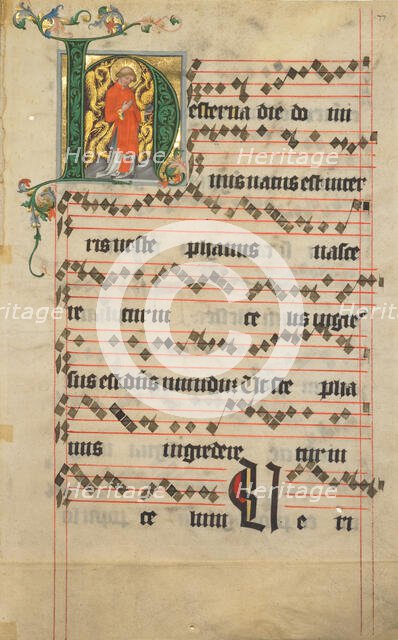 77
Hesterna die do mi
nus natus est in ter
ris ut ste phanus nasce
re tur in ce lis ingres
sus est dñs mundū Ut ste pha
nus ingredere tur in
ce lum H e ri
Heritage
Heritage
Heritage
Heritage
Heritage
Heritage
Heritage